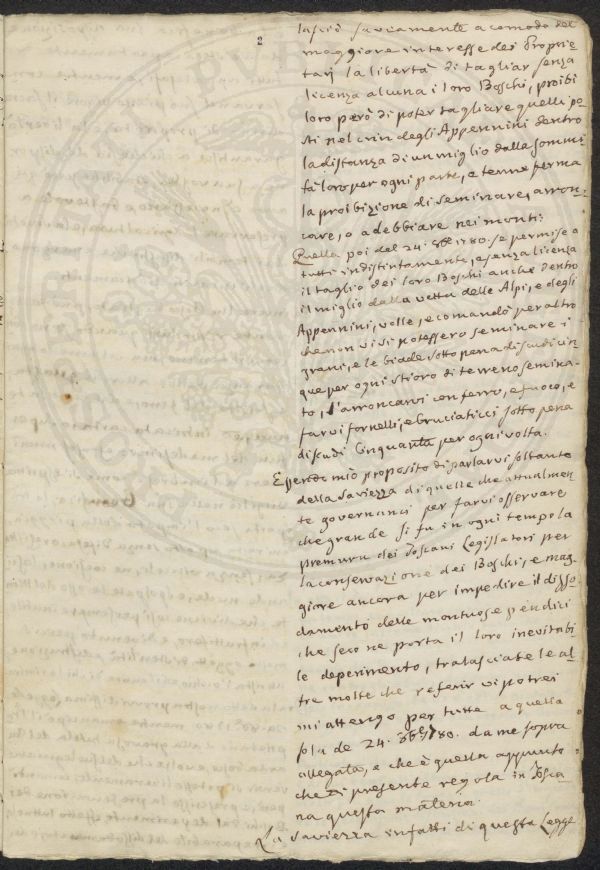 2
lasciò saviamente a comodo del
maggiore interesse dei Proprie-
tarj la libertà di tagliar senza
licenza alcuna i loro Boschi, proibì
loro però di poter tagliare quelli po-
sti nel crin degli Appennini dentro
la distanza di un miglio dalla sommi-
tà loro per ogni parte, e tenne ferma
la proibizione di seminare, arron-
care, o adebbiare nei monti:
Quella poi del 24. 8bre 1780. se permise a
tutti indistintamente, e senza licenza
il taglio dei loro Boschi anche dentro
il miglio dalla vetta delle Alpi, e degli
Appennini, volle, e comandò per altro
che non vi si potessero seminare i
grani, e le biade sotto pena di scudi cin-
que per ogni stioro di terreno semina-
to, l'arroncarvi con ferro, e fuoco, e
farvi fornelli, e bruciaticci sotto pena
di scudi Cinquanta per ogni volta.
Essendo mio proposito di parlarvi soltanto
della Saviezza di quelle che attualmen-
te governanci per farvi osservare
che grande si fu in ogni tempo la
premura dei Toscani Legislatori per
la conservazione dei Boschi, e mag-
giore ancora per impedire il disso-
damento delle montuose pendici
che seco ne porta il loro inevitabi-
le deperimento, tralasciate le al-
tre molte che referir vi potrei
mi attengo per tutte a quella
sola de 24. 8bre 1780. da me sopra
allegata, e che è quella appunto
che di presente regola in Tosca-
na questa materia.
La Saviezza infatti di questa Legge